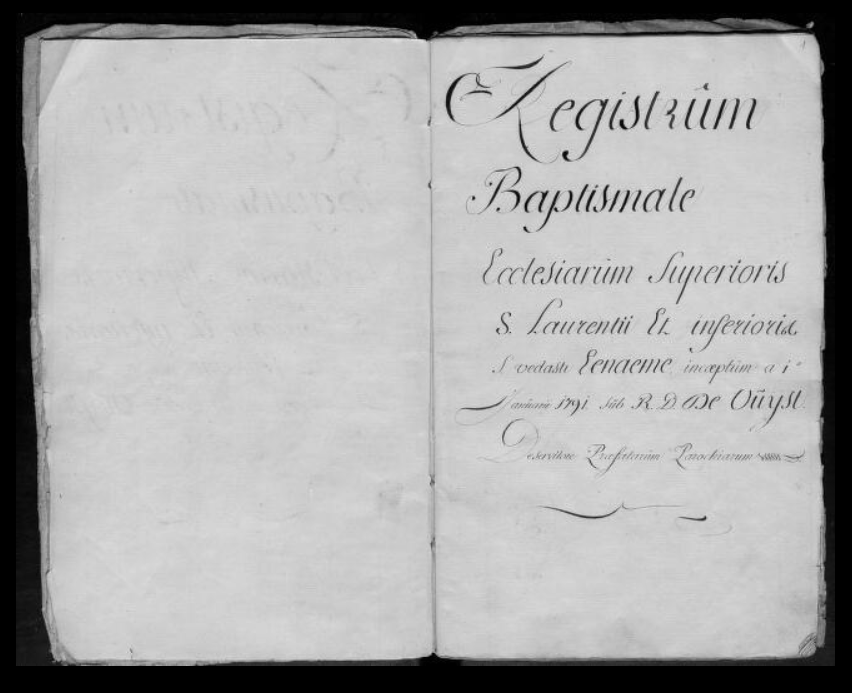 1
Registrûm
Baptismale
Ecclesiarûm Superioris
S. Laurentii Et inferioris
S vedasti Eenaeme incœptûm a 1º
Januarii 1791 sûb R. D. De Vûyst.
Deservitore Præfatarûm Parochiarum